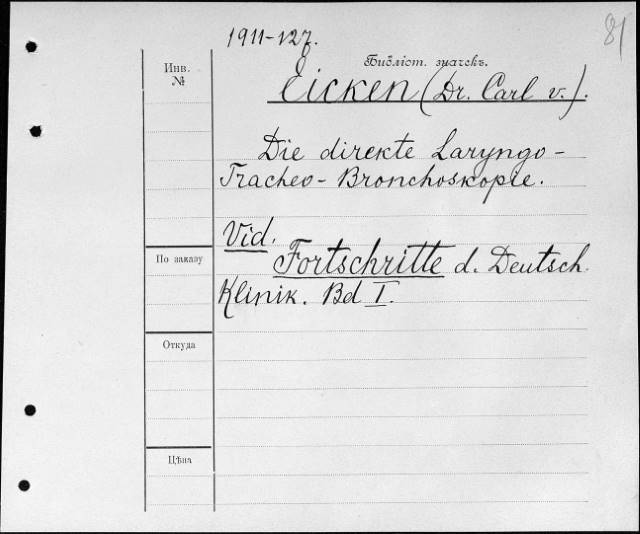 81
1911-127.
Библіот. значекъ.
Инв.
№
Eicken (Dr. Carl v.).
Die direkte Laryngo-
Tracheo-Bronchoskopie.
Vid.
Fortschritte d. Deutsch.
Klinik. Bd I.
По заказу
Откуда
Цѣна